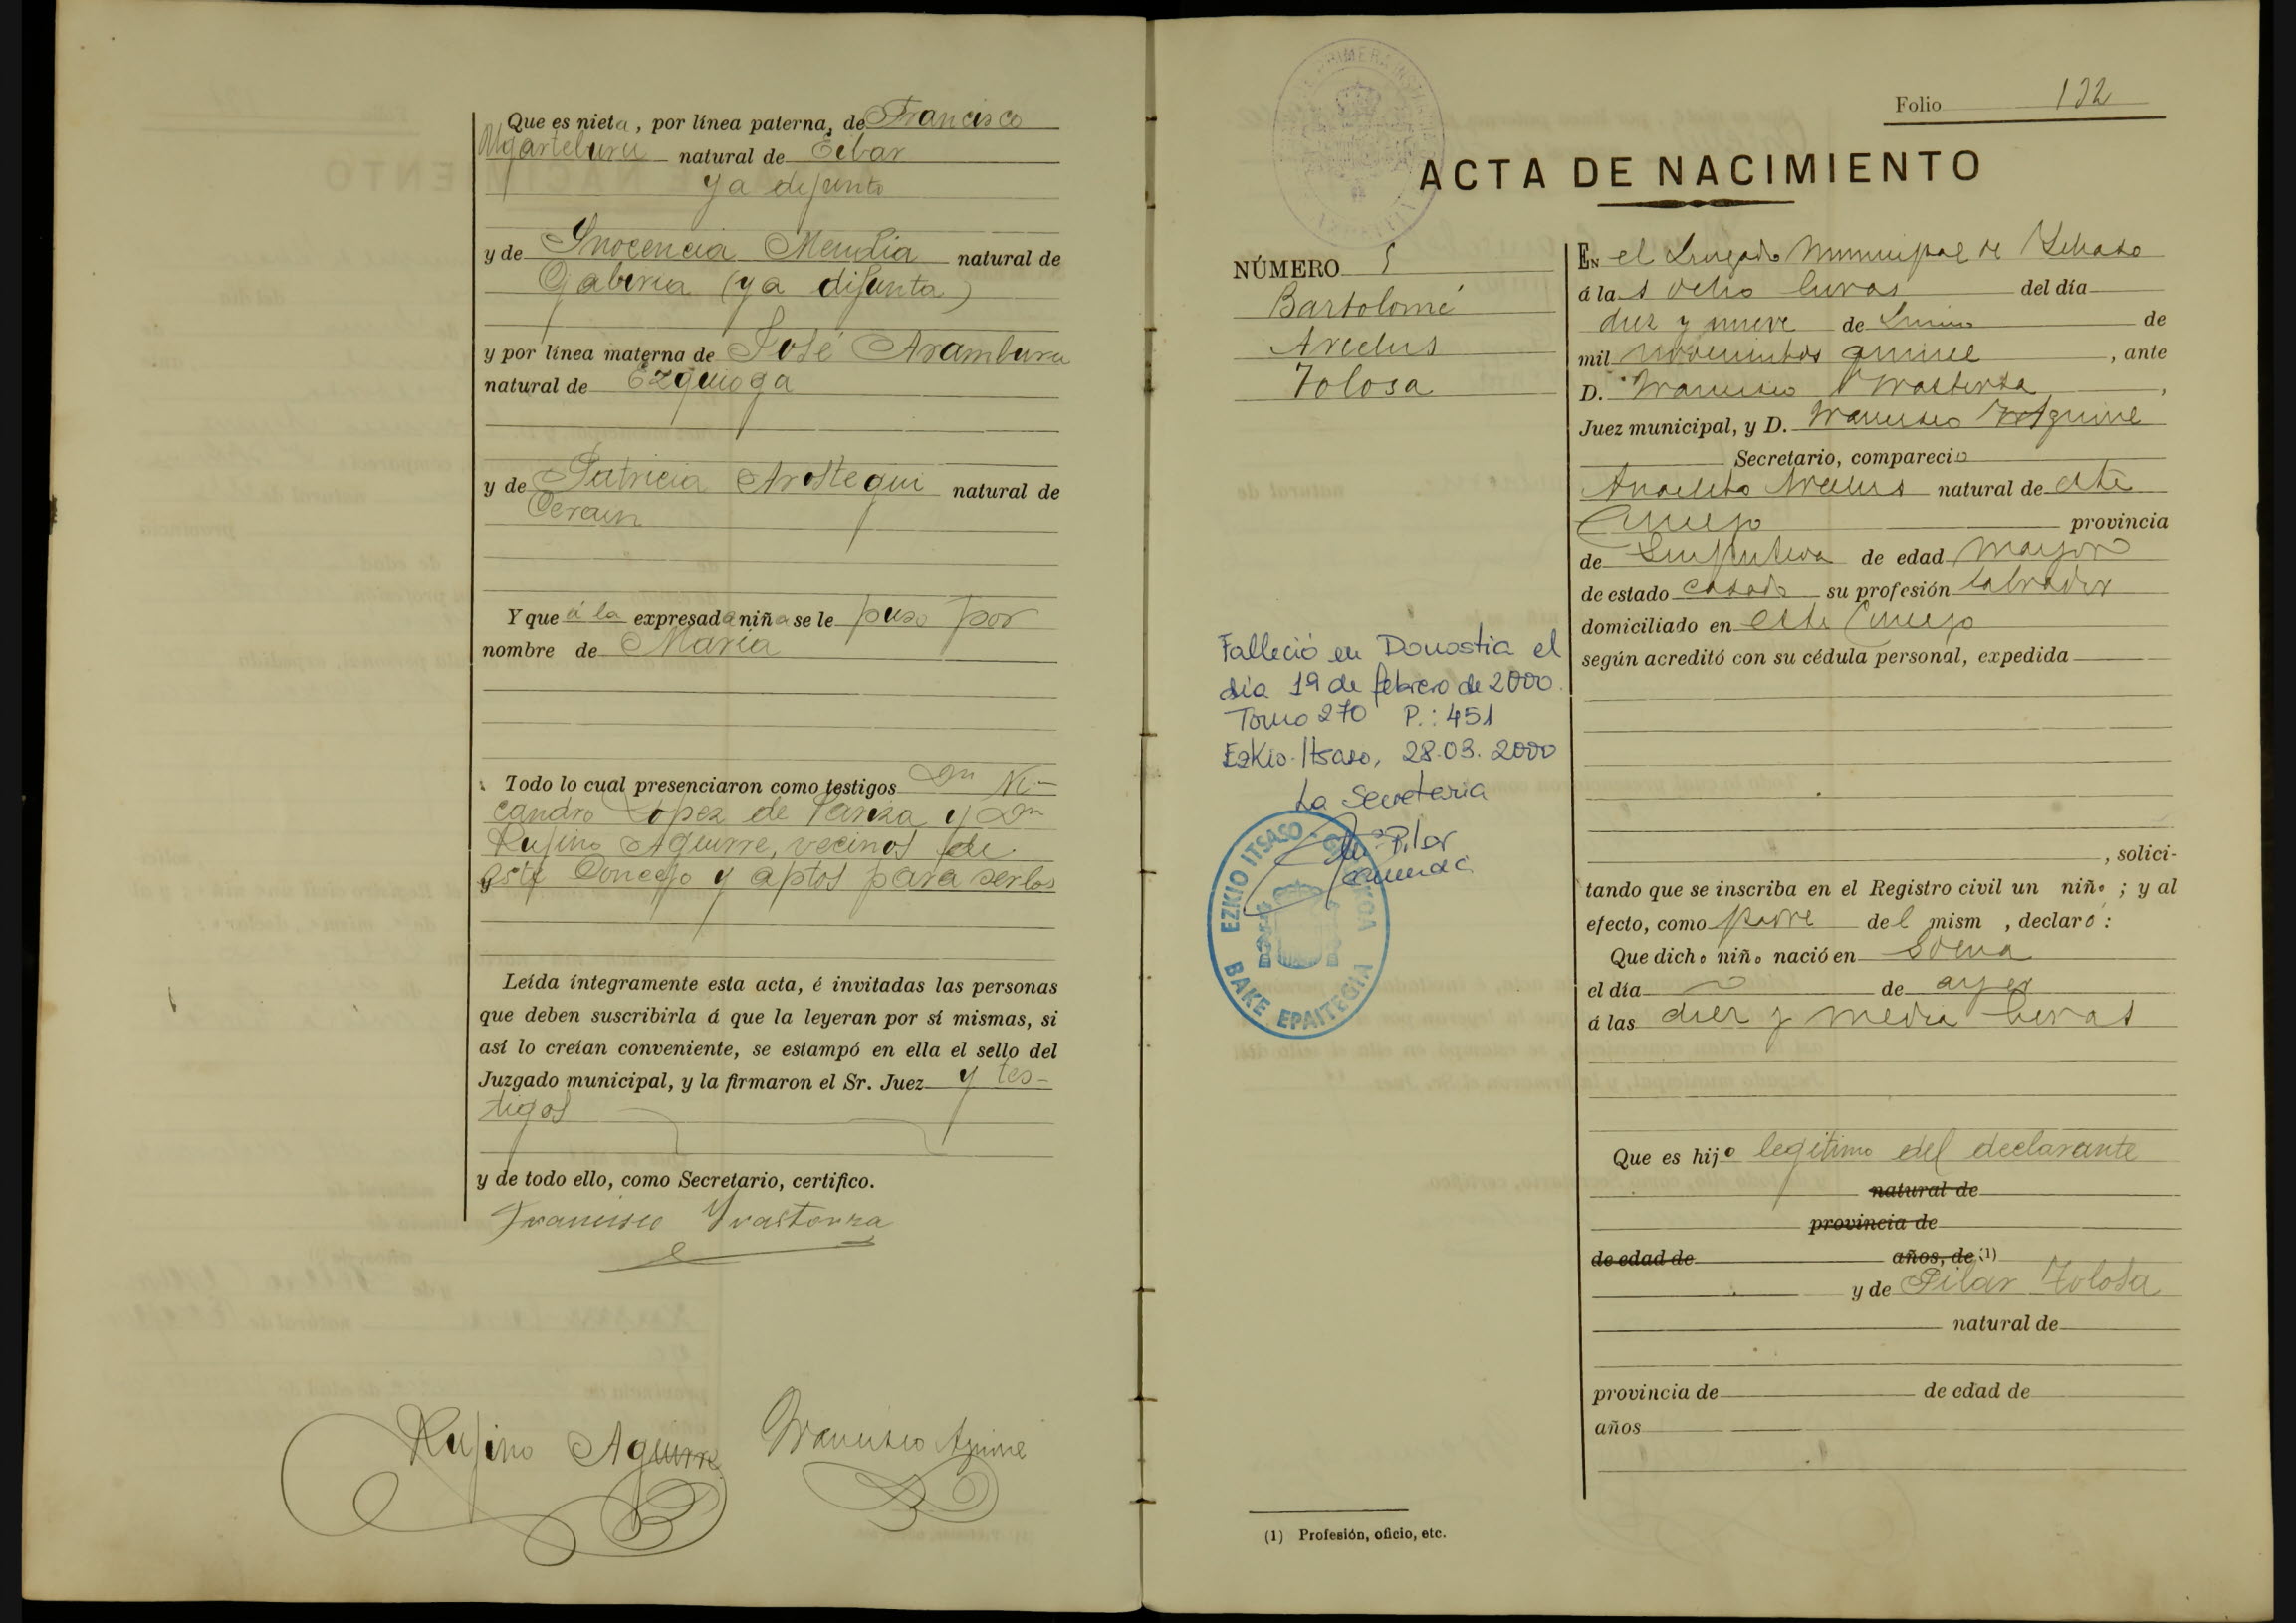 Que es nieta, por línea paterna, de Francisco
Ugarteburu natural de Eibar
ya difunto
y de Inocencia Mendia natural de
Gabiria (ya difunta)
y por línea materna de José Aramburu
natural de Ezquioga
y de Patricia Arostegui natural de
Cerain
Y que á la expresada niña se le puso por
nombre de María
Todo lo cual presenciaron como testigos Dn Ni-
candro Lopez de Pariza y Dn
Rufino Aguirre, vecinos de
este Concejo y aptos para serlos
Leída íntegramente esta acta, é invitadas las personas
que deben suscribirla á que la leyeran por sí mismas, si
así lo creían conveniente, se estampó en ella el sello del
Juzgado municipal, y la firmaron el Sr. Juez y tes-
tigos
y de todo ello, como Secretario, certifico.
Francisco Yrastorza
Rufino Aguirre Francisco Aguirre
Folio 132
ACTA DE NACIMIENTO
NÚMERO 5
Bartolomé
Arcelus
Tolosa
Falleció en Donostia el
día 19 de febrero de 2000.
Tomo 270 P.: 451
Ezkio-Itsaso, 28.03.2000
La Secretaria
Mª Pilar
EZKIO ITSASO - GIPUZKOA
BAKE EPAITEGIA
EN el Juzgado Municipal de Ychaso
á las ocho horas del día
diez y nueve de Junio de
mil novecientos quince, ante
D. Francisco Yrastorza,
Juez municipal, y D. Francisco Aguirre
Secretario, compareció
Anacleto Arcelus natural de este
Concejo provincia
de Guipuzcoa de edad mayor
de estado casado su profesión labrador
domiciliado en este Concejo
según acreditó con su cédula personal, expedida
, solici-
tando que se inscriba en el Registro civil un niño; y al
efecto, como padre del mism , declaró:
Que dicho niño nació en
el día de ayer
á las diez y media horas
Que es hijo legítimo del declarante
natural de
provincia de
de edad de años, de (1)
y de Pilar Tolosa
natural de
provincia de de edad de
años
(1) Profesión, oficio, etc.